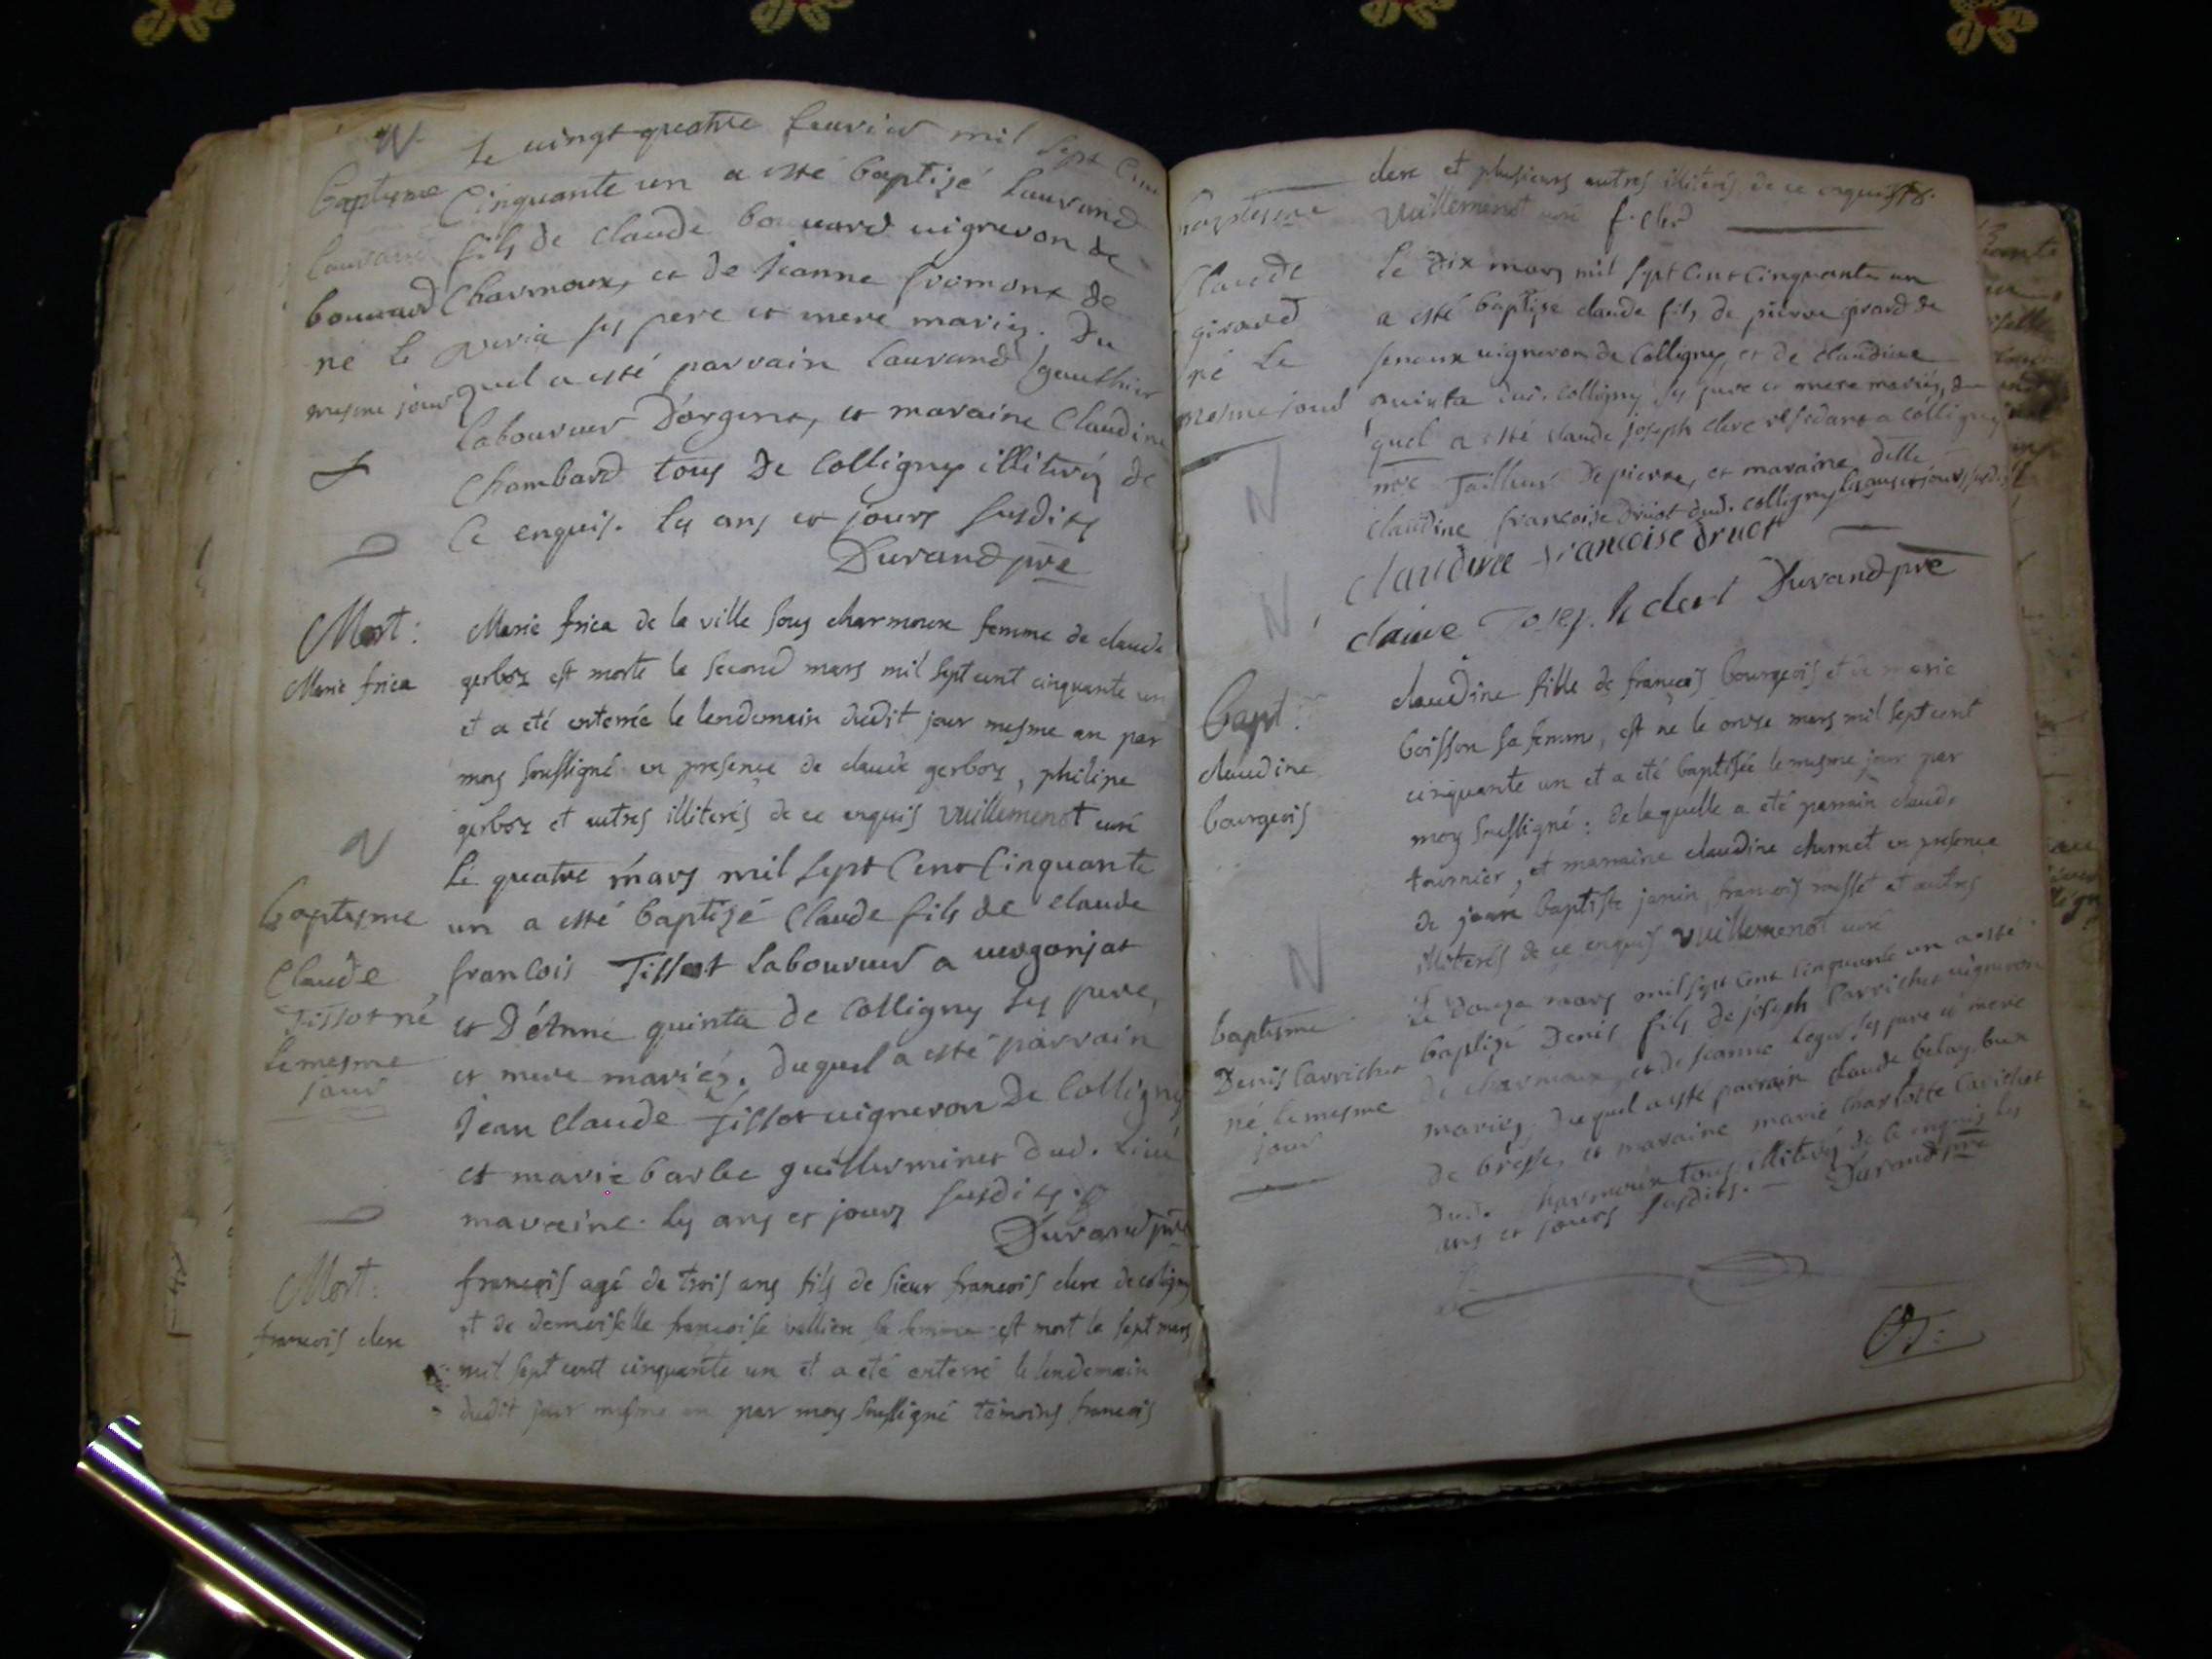 N
Le vingt quatre feuvier mil sept Cent
Baptesme
Cinquante un a esté baptizé Lauvand
fils de claude bouuard uigneron de
bouuard
Charmoux, et de Jeanne fromont de
né le
ses pere et mere mariez. Du
mesme jour
quel a esté parrain Lauvand gauthier
laboureur D'orgent, et maraine Claudine
Chambard tous de Colligny illiterés de
Ce enquis. Les ans et jours susdits
Durand pre
Mort:
Marie frica
Marie frica de la ville sous charmoux femme de claude
gerboz est morte le second mars mil sept cent cinquante un
et a eté enterrée le lendemain dudit jour mesme an par
moy soussigné en presence de claude gerboz, philipe
gerboz et autres illiterés de ce enquis Vuillemenot curé
N
Baptesme
Claude
Tissot né
le mesme
jour
Le quatre mars mil sept Cent Cinquante
un a esté baptizé Claude fils de claude
francois Tissot Laboureur a uergonjat
et D'Anne quinta de Colligny ses pere,
et mere mariés. duquel a esté parrain
Jean claude Tissot uigneron De Colligny
et marie barbe guillerminet dud. Lieu
maraine. Les ans et jours susdits
Durand pre
Mort:
francois clerc
francois agé de trois ans fils de sieur francois clerc de coligny
et de demoiselle francoise vallier sa femme est mort le sept mars
mil sept cent cinquante un et a eté enterré le lendemain
dudit jour mesme an par moy soussigné témoins francois
clerc et plusieurs autres illiterés de ce enquis
Vuillemenot curé
Baptesme
Claude
girard
né Le
mesme jour
Le dix mars mil sept Cent Cinquante un
a esté baptize claude fils de pierre girard de
uigneron de Colligny, et de claudine
quinta dud. Colligny ses pere et mere mariés, du
quel a esté claude joseph clerc residant a Colligny
mre Tailleur de pierre, et maraine delle
claudine francoise Druot dud. Colligny les ans et jours susdits
claudine francoise druot
claude Joseph clerc Durand pre
N
N
Bapt:
claudine
bourgeois
claudine fille de francois bourgeois et de marie
boisson sa femme, est ne le onze mars mil sept cent
cinquante un et a eté baptisée le mesme jour par
moy soussigné: de laquelle a eté parrain claude
tournier, et marraine claudine chernet en presence
de jean baptiste janin, francois et autres
illiterés de ce enquis Vuillemenot curé
N
baptesme
Denis Carrichet
né le mesme
jour
Le Douze mars mil sept cent cinquante un a esté
baptizé Denis fils de joseph Carrichet uigneron
de charmoux, et de jeanne Leger ses pere et mere
mariez. Duquel a esté parrain claude
de bresse, et maraine marie charlotte Carichet
Dud. charmoux tous illiterés de ce enquis les
ans et jours susdits. — Durand pre